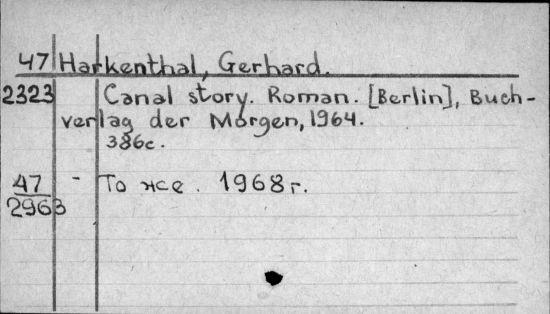 47 Harkenthal, Gerhard.
2323 Canal story. Roman. [Berlin], Buch-
verlag der Morgen, 1964.
386с.
47 - То же. 1968г.
2963